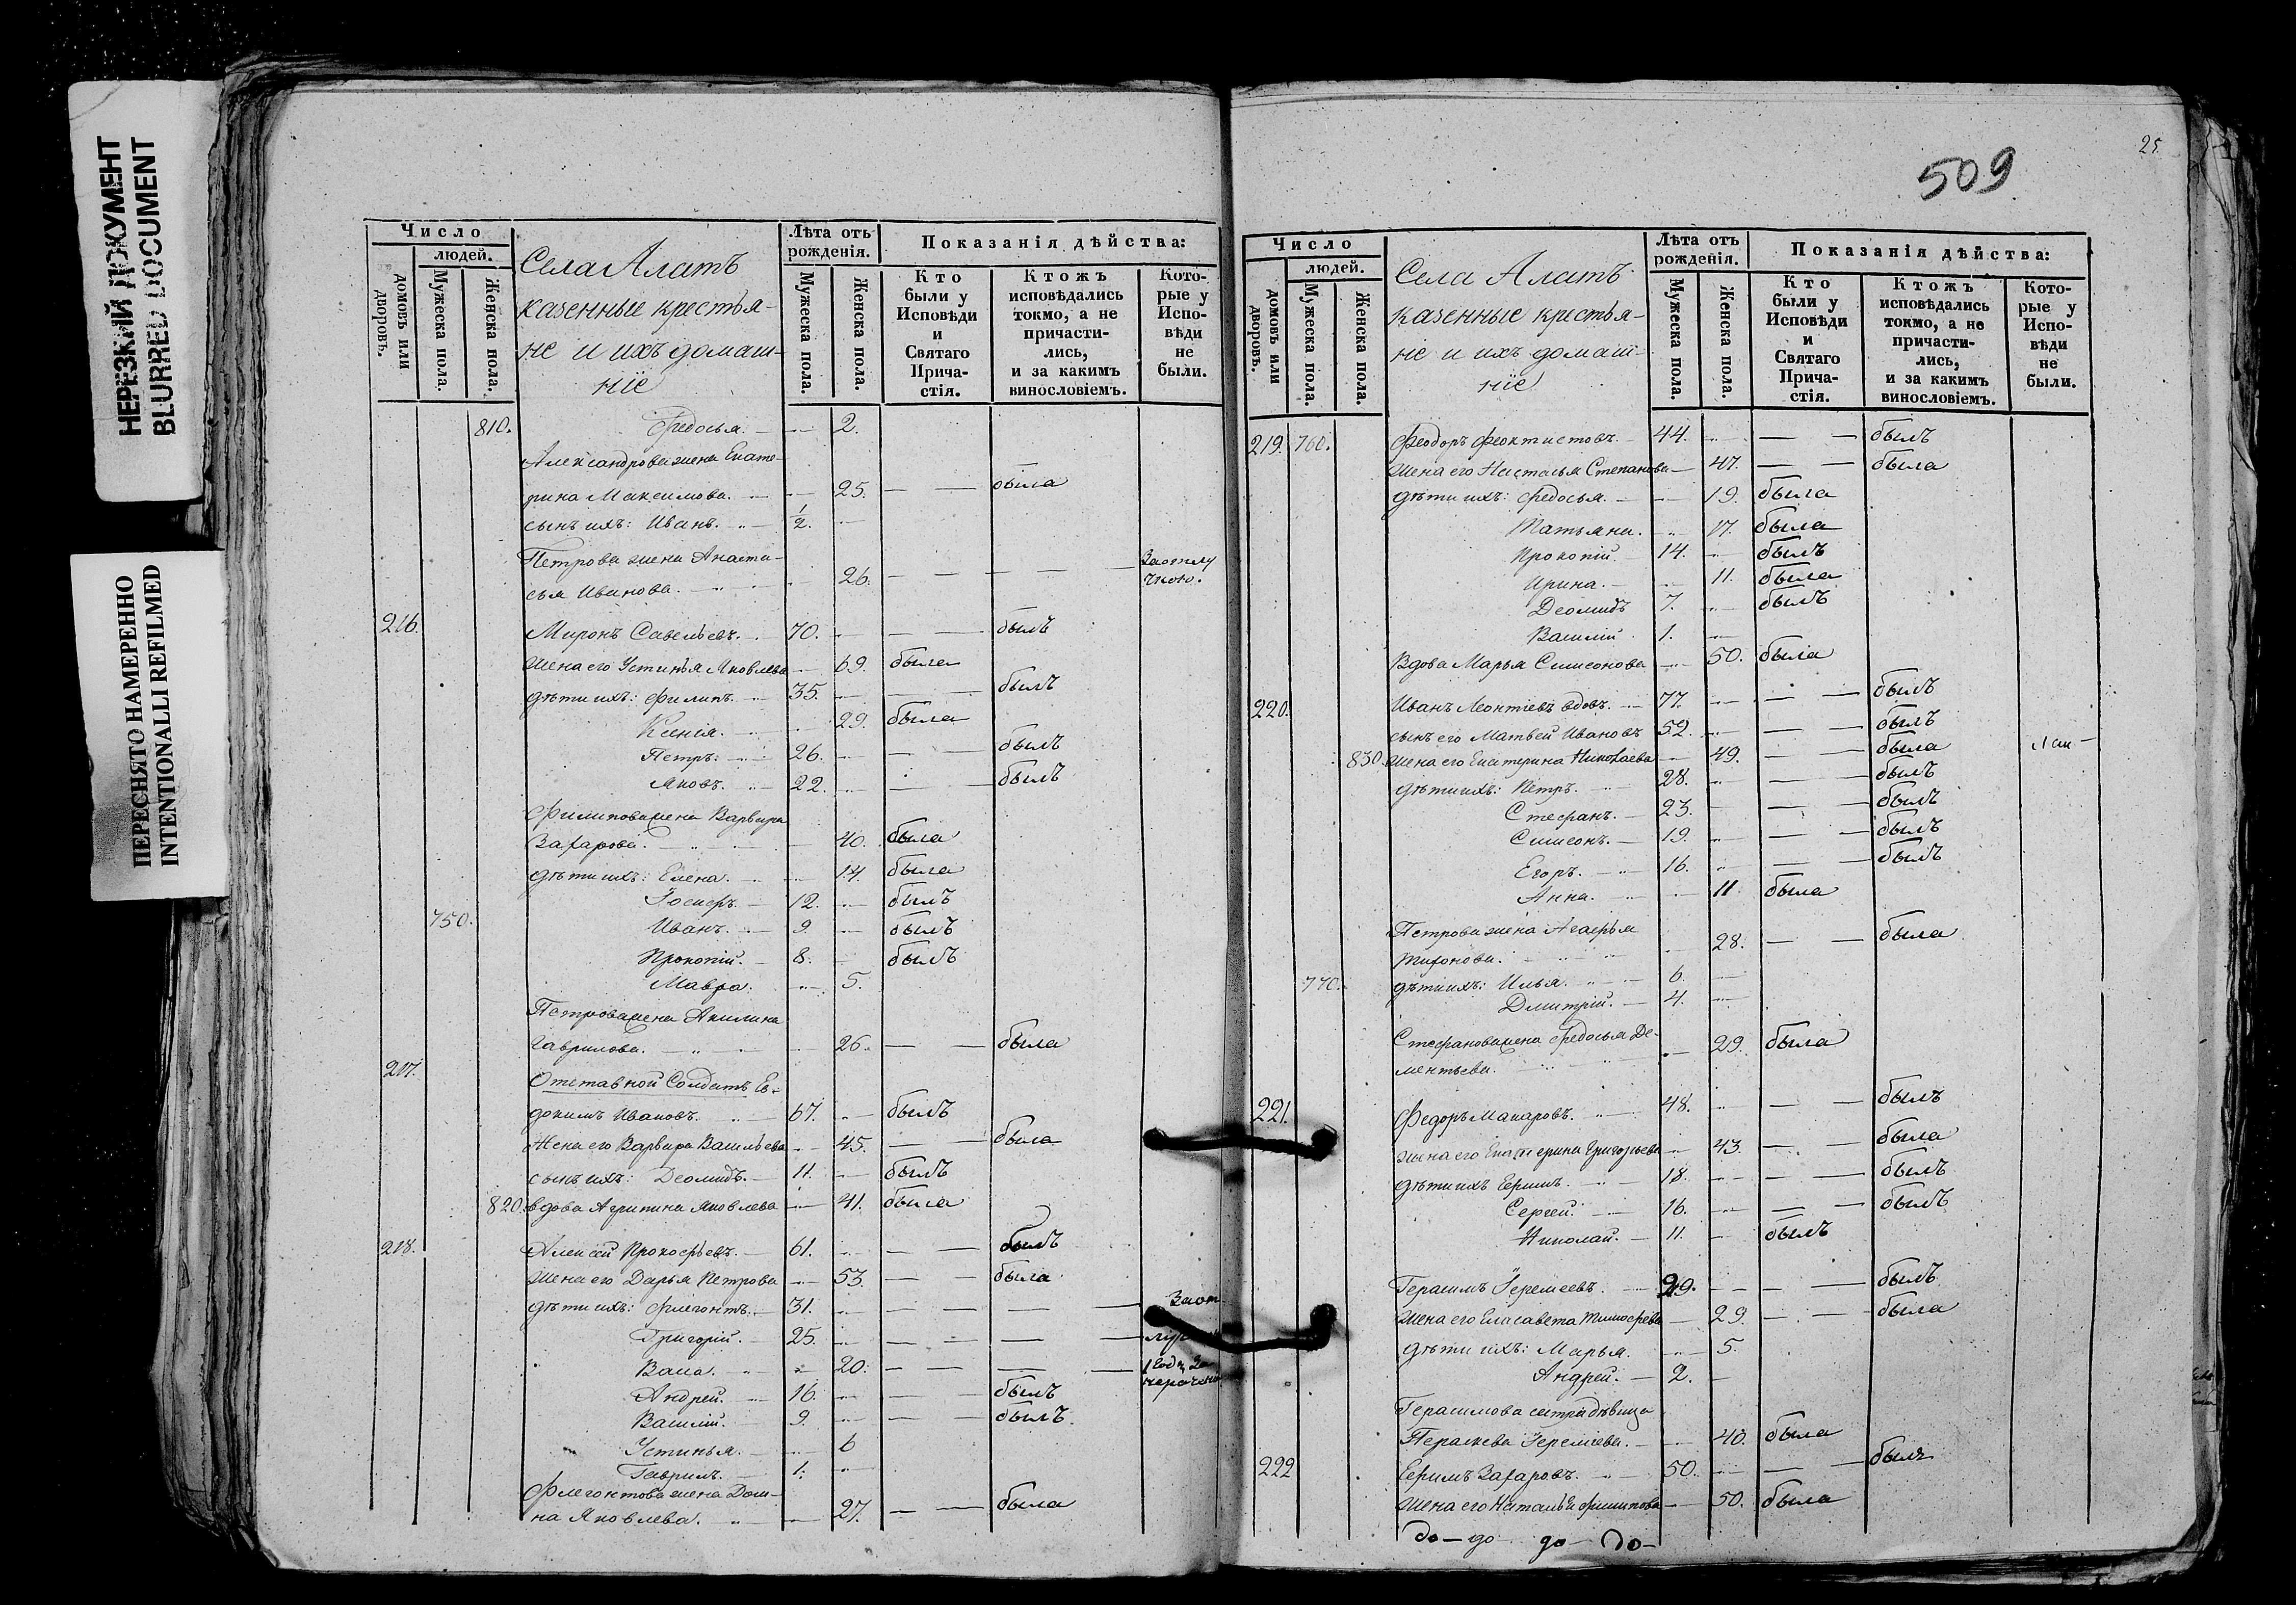 НЕРЕЗКИЙ ДОКУМЕНТ
BLURRED DOCUMENT
ПЕРЕСНЯТО НАМЕРЕННО
INTENTIONALLI REFILMED
Число
людей.
домовъ или дворовъ.
Мужеска пола.
Женска пола.
Села Алатъ
казенные крестья-
не и ихъ домаш-
нiе
Лѣта отъ рожденія.
Мужеска пола.
Женска пола.
Показанія дѣйства:
Кто были у Исповѣди и Святаго Прича-стія.
Ктожъ исповѣдались токмо, а не причасти-лись, и за какимъ винословіемъ.
Кото-рые у Испо-вѣди не были.
810. Федосья. — 2.
Александрова жена Екате-
рина Максимова. — 25. — — была
сынъ ихъ: Иванъ. — ½.
Петрова жена Анаста-
сья Иванова. — 26. — — — За отлу
чкою.
216. Миронъ Савельевъ. — 70. — — былъ
Жена его Устинья Яковлева — 69. была
дѣти ихъ: Филипъ. — 35. — — былъ
Ксенія. — 29. была
Петръ. — 26. — — былъ
Яковъ. — 22. — — былъ
Филипова жена Варвара
Захарова. — 40. была
дѣти ихъ: Елена. — 14. была
Іосифъ. — 12. — былъ
750. Иванъ. — 9. — былъ
Прокопій. — 8. — былъ
Мавра. — 5.
Петрова жена Акилина
Гаврилова. — 26. — — была
217. Отставной Солдатъ Ев-
докимъ Ивановъ. — 67. — былъ
Жена его Варвара Васильева — 45. — — была
сынъ ихъ: Деомидъ. — 11. — былъ
820. вдова Агрипина Яковлева — 41. была
218. Алексѣй Прокофьевъ. — 61. — — былъ
Жена его Дарья Петрова — 53. — — была
дѣти ихъ: Флегонтъ. — 31. — — — За от
Григорій. — 25. — — —
Васа. — 20. — — —
Андрей. — 16. — — былъ
Василій. — 9. — — былъ.
Устинья. — 6
Гаврилъ. — 1.
Флегонтова жена Дом-
на Яковлева. — 27. — — была
25
509
Число
людей.
домовъ или дворовъ.
Мужеска пола.
Женска пола.
Села Алатъ
казенные крестья-
не и ихъ домаш-
нiе
Лѣта отъ рожденія.
Мужеска пола.
Женска пола.
Показанія дѣйства:
Кто были у Исповѣди и Святаго Прича-стія.
Ктожъ исповѣдались токмо, а не причасти-лись, и за какимъ винословіемъ.
Кото-рые у Испо-вѣди не были.
219. 760. Феодоръ Феоктистовъ. — 44. — — былъ
Жена его Настасья Степанова — 47. — — была
дѣти ихъ: Федосья. — 19. была
Татьяна. — 17. была
Прокопій. 14. — былъ
Ирина. — 11. была
Деомидъ 7. — былъ
Василій. 1. —
Вдова Марья Симеонова — 50. была
220. Иванъ Леонтіевъ вдовъ. — 77. — — былъ
сынъ его Матвей Ивановъ 52. — — былъ
830. Жена его Екатерина Николаева — 49. — — была
дѣти ихъ: Петръ. — 28. — — былъ
Стефанъ. — 23. — — былъ
Симеонъ. — 19. — — былъ
Егоръ. — 16. — — былъ
Анна. — 11. была
Петрова жена Агафья
Тихонова. — 28. — — была
770. дѣти ихъ: Илья. — 6. —
Дмитрій. — 4. —
Стефанова жена Федосья Де-
ментьева. — 29. была
221. Федоръ Макаровъ. — 48. — — былъ
жена его Екатерина Григорьева — 43. — — была
дѣти ихъ Ефимъ. — 18. — — былъ
Сергей. — 16. — — былъ
Николай. — 11. — былъ
Герасимъ Іеремеевъ. — 29. — — былъ
Жена его Елисавета Тимофеева — 29. — — была
дѣти ихъ: Марья. — 5.
Андрей. — 2. —
Герасимова сестра дѣвица
Параскева Іеремеева. — 40. была
222 Ефимъ Захаровъ. — 50. — — былъ
Жена его Наталья Филипова — 50. была
до — до — до — до —